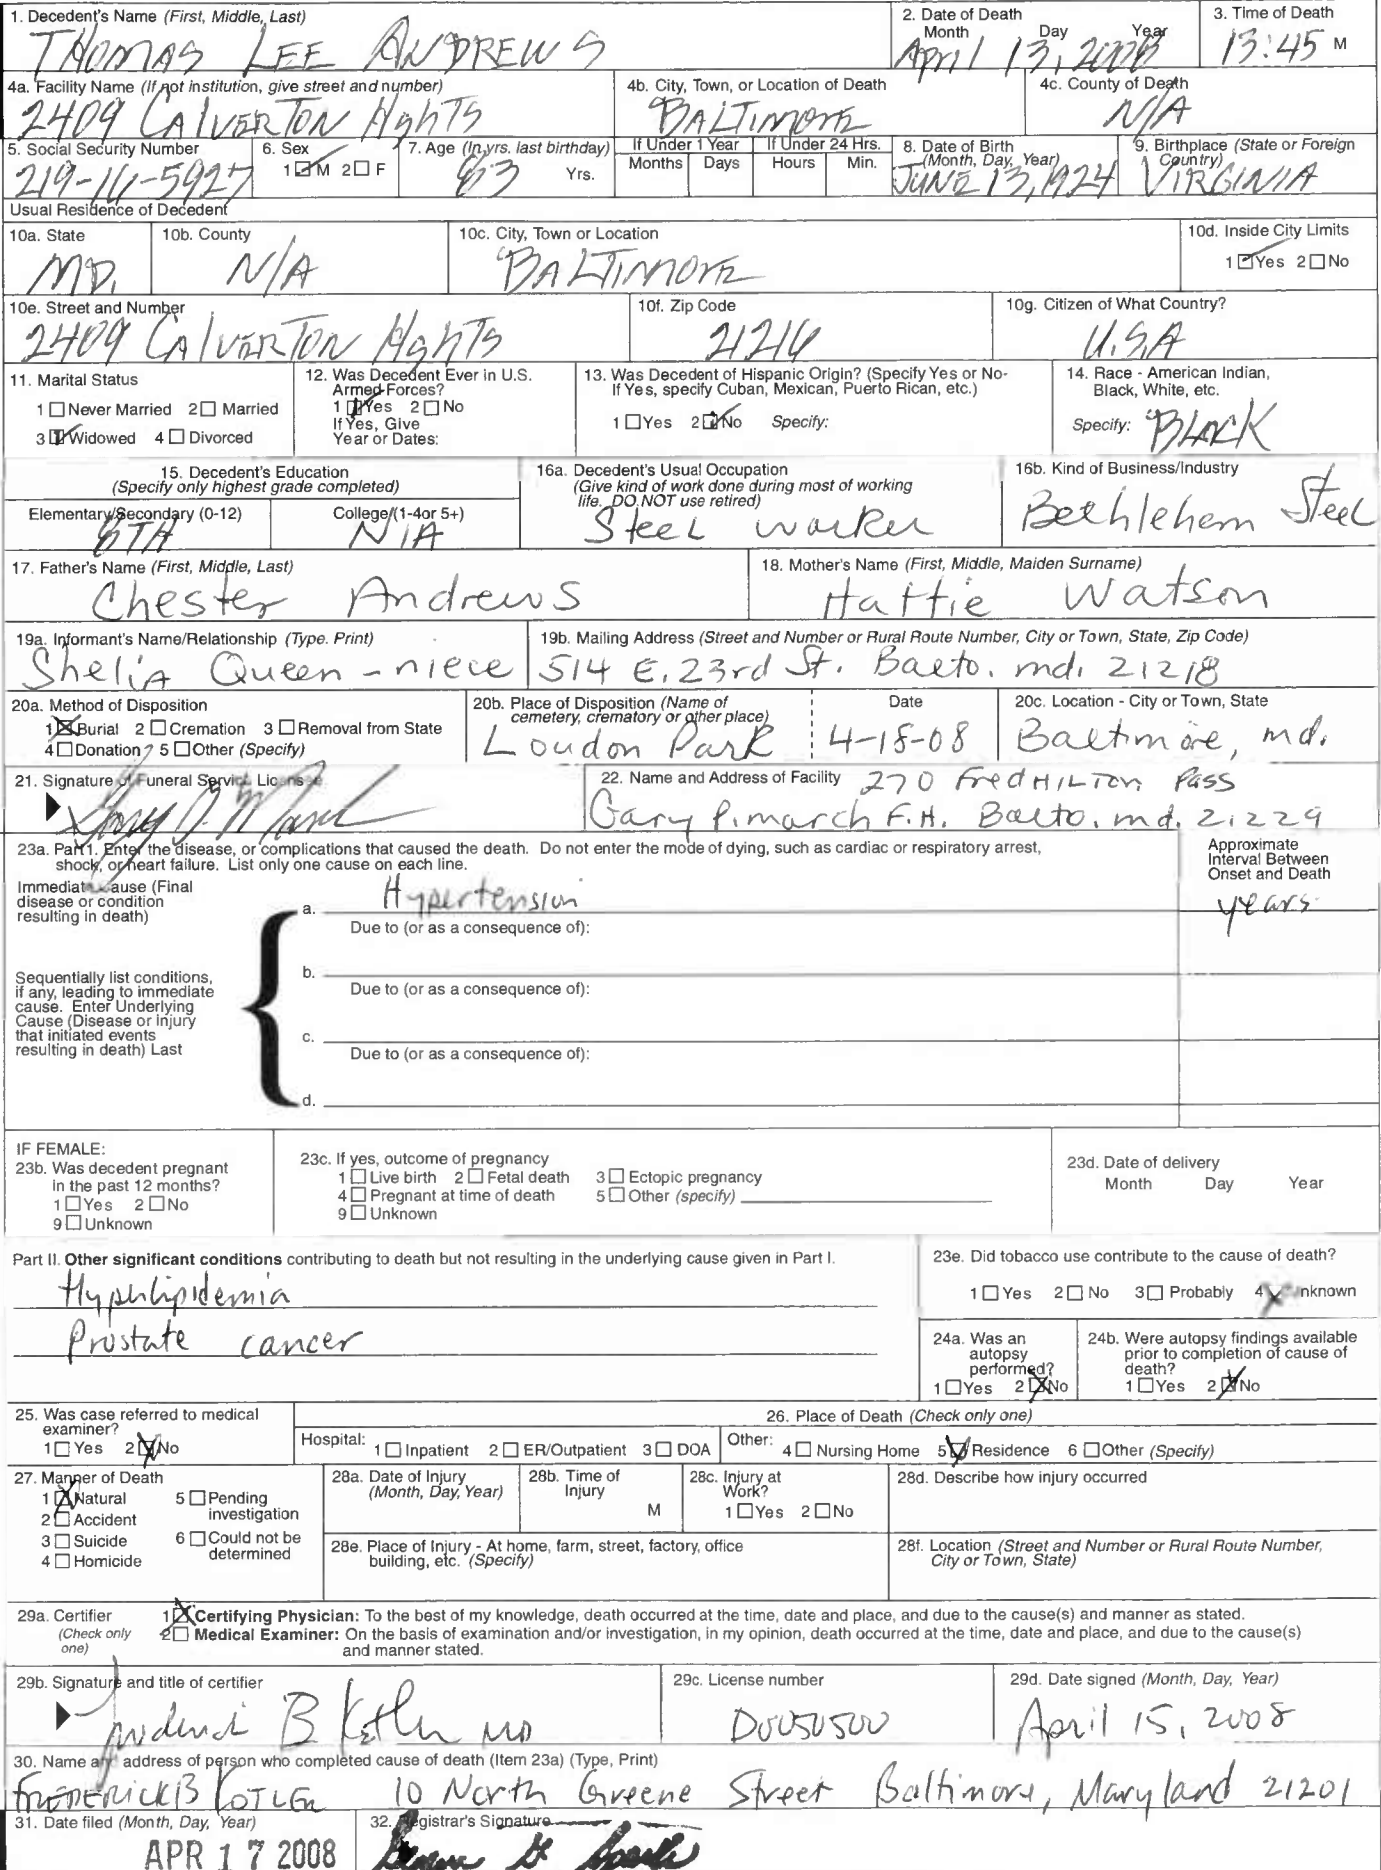 1. Decedent's Name (First, Middle, Last)
THOMAS LEE ANDREWS
2. Date of Death
Month Day Year
April 13, 2008
3. Time of Death
13:45 M
4a. Facility Name (If not institution, give street and number)
2409 CALVERTON Hghts
4b. City, Town, or Location of Death
BALTIMORE
4c. County of Death
N/A
5. Social Security Number
219-16-5927
6. Sex
1 ☑ M 2 ☐ F
7. Age (In yrs. last birthday)
83 Yrs.
If Under 1 Year
Months Days
If Under 24 Hrs.
Hours Min.
8. Date of Birth
(Month, Day, Year)
JUNE 13, 1924
9. Birthplace (State or Foreign
Country)
VIRGINIA
Usual Residence of Decedent
10a. State
MD.
10b. County
N/A
10c. City, Town or Location
BALTIMORE
10d. Inside City Limits
1 ☑ Yes 2 ☐ No
10e. Street and Number
2409 CALVERTON Hghts
10f. Zip Code
21216
10g. Citizen of What Country?
U.S.A
11. Marital Status
1 ☐ Never Married 2 ☐ Married
3 ☑ Widowed 4 ☐ Divorced
12. Was Decedent Ever in U.S.
Armed Forces?
1 ☑ Yes 2 ☐ No
If Yes, Give
Year or Dates:
13. Was Decedent of Hispanic Origin? (Specify Yes or No-
If Yes, specify Cuban, Mexican, Puerto Rican, etc.)
1 ☐ Yes 2 ☑ No Specify:
14. Race - American Indian,
Black, White, etc.
Specify: BLACK
15. Decedent's Education
(Specify only highest grade completed)
Elementary/Secondary (0-12)
8TH
College (1-4or 5+)
N/A
16a. Decedent's Usual Occupation
(Give kind of work done during most of working
life. DO NOT use retired)
Steel worker
16b. Kind of Business/Industry
Bethlehem Steel
17. Father's Name (First, Middle, Last)
Chester Andrews
18. Mother's Name (First, Middle, Maiden Surname)
Hattie Watson
19a. Informant's Name/Relationship (Type. Print)
Shelia Queen - niece
19b. Mailing Address (Street and Number or Rural Route Number, City or Town, State, Zip Code)
514 E. 23rd St. Balto. md. 21218
20a. Method of Disposition
1 ☒ Burial 2 ☐ Cremation 3 ☐ Removal from State
4 ☐ Donation 5 ☐ Other (Specify)
20b. Place of Disposition (Name of
cemetery, crematory or other place)
Loudon Park
Date
4-18-08
20c. Location - City or Town, State
Baltimore, md.
21. Signature of Funeral Service Licensee
22. Name and Address of Facility 270 Fred HILTON Pass
Gary P. march F.H. Balto. md. 21229
23a. Part1. Enter the disease, or complications that caused the death. Do not enter the mode of dying, such as cardiac or respiratory arrest,
shock, or heart failure. List only one cause on each line.
Approximate
Interval Between
Onset and Death
Immediate Cause (Final
disease or condition
resulting in death)
a. Hypertension
years
Due to (or as a consequence of):
Sequentially list conditions,
if any, leading to immediate
cause. Enter Underlying
Cause (Disease or injury
that initiated events
resulting in death) Last
b.
Due to (or as a consequence of):
c.
Due to (or as a consequence of):
d.
IF FEMALE:
23b. Was decedent pregnant
in the past 12 months?
1 ☐ Yes 2 ☐ No
9 ☐ Unknown
23c. If yes, outcome of pregnancy
1 ☐ Live birth 2 ☐ Fetal death 3 ☐ Ectopic pregnancy
4 ☐ Pregnant at time of death 5 ☐ Other (specify)
9 ☐ Unknown
23d. Date of delivery
Month Day Year
Part II. Other significant conditions contributing to death but not resulting in the underlying cause given in Part I.
Hyperlipidemia
Prostate cancer
23e. Did tobacco use contribute to the cause of death?
1 ☐ Yes 2 ☐ No 3 ☐ Probably 4 ☒ Unknown
24a. Was an
autopsy
performed?
1 ☐ Yes 2 ☒ No
24b. Were autopsy findings available
prior to completion of cause of
death?
1 ☐ Yes 2 ☒ No
25. Was case referred to medical
examiner?
1 ☐ Yes 2 ☒ No
26. Place of Death (Check only one)
Hospital: 1 ☐ Inpatient 2 ☐ ER/Outpatient 3 ☐ DOA Other: 4 ☐ Nursing Home 5 ☒ Residence 6 ☐ Other (Specify)
27. Manner of Death
1 ☒ Natural 5 ☐ Pending
investigation
2 ☐ Accident
3 ☐ Suicide 6 ☐ Could not be
determined
4 ☐ Homicide
28a. Date of Injury
(Month, Day, Year)
28b. Time of
Injury
M
28c. Injury at
Work?
1 ☐ Yes 2 ☐ No
28d. Describe how injury occurred
28e. Place of Injury - At home, farm, street, factory, office
building, etc. (Specify)
28f. Location (Street and Number or Rural Route Number,
City or Town, State)
29a. Certifier
(Check only
one)
1 ☒ Certifying Physician: To the best of my knowledge, death occurred at the time, date and place, and due to the cause(s) and manner as stated.
2 ☐ Medical Examiner: On the basis of examination and/or investigation, in my opinion, death occurred at the time, date and place, and due to the cause(s)
and manner stated.
29b. Signature and title of certifier
Frederick B Kotler MD
29c. License number
D0050500
29d. Date signed (Month, Day, Year)
April 15, 2008
30. Name and address of person who completed cause of death (Item 23a) (Type, Print)
FREDERICK B KOTLER 10 North Greene Street Baltimore, Maryland 21201
31. Date filed (Month, Day, Year)
APR 17 2008
32. Registrar's Signature